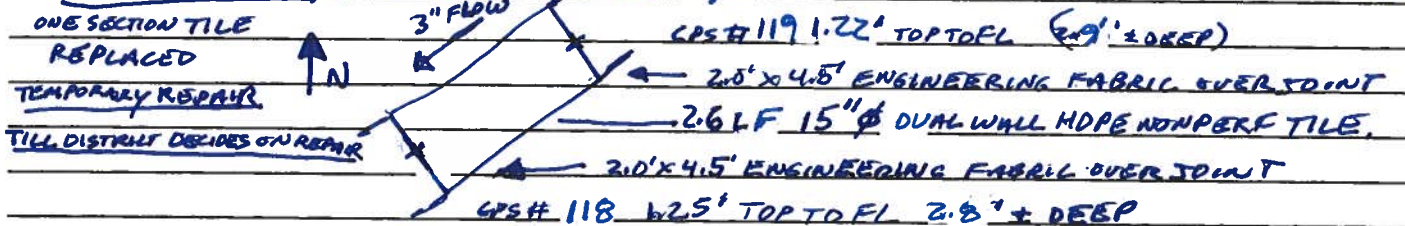 ONE SECTION TILE
REPLACED
TEMPORARY REPAIR
TILL DISTRICT DECIDES ON REPAIR
N
3" FLOW
GPS# 119 1.22' TOP TO FL (2.9' ± DEEP)
2.0' X 4.5' ENGINEERING FABRIC OVER JOINT
2.6 LF 15"ø DUAL WALL HDPE NONPERF TILE.
2.0' X 4.5' ENGINEERING FABRIC OVER JOINT
GPS# 118 1.25' TOP TO FL 2.8' ± DEEP